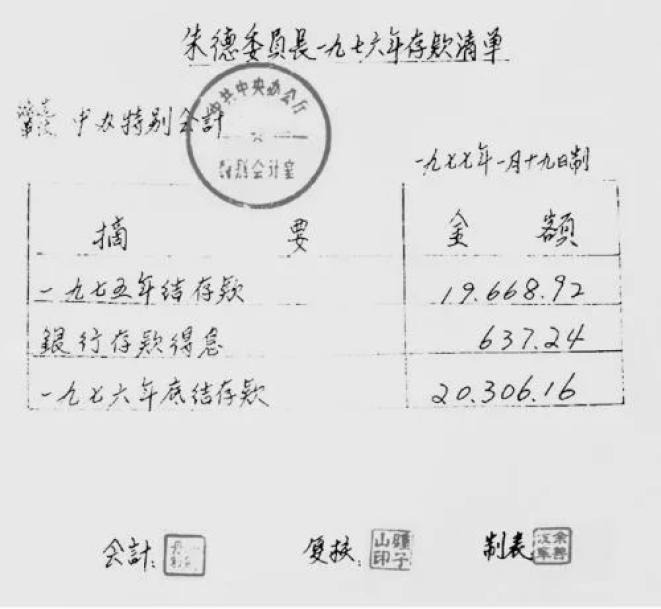 朱德委員長一九七六年存款清单
中共中央办公厅
特别会计室
中办特别会計
一九七七年一月十九日制
摘 要 金 額
一九七五年结存款 19.668.92
銀行存款得息 637.24
一九七六年底结存款 20.306.16
会計: 复核: 制表